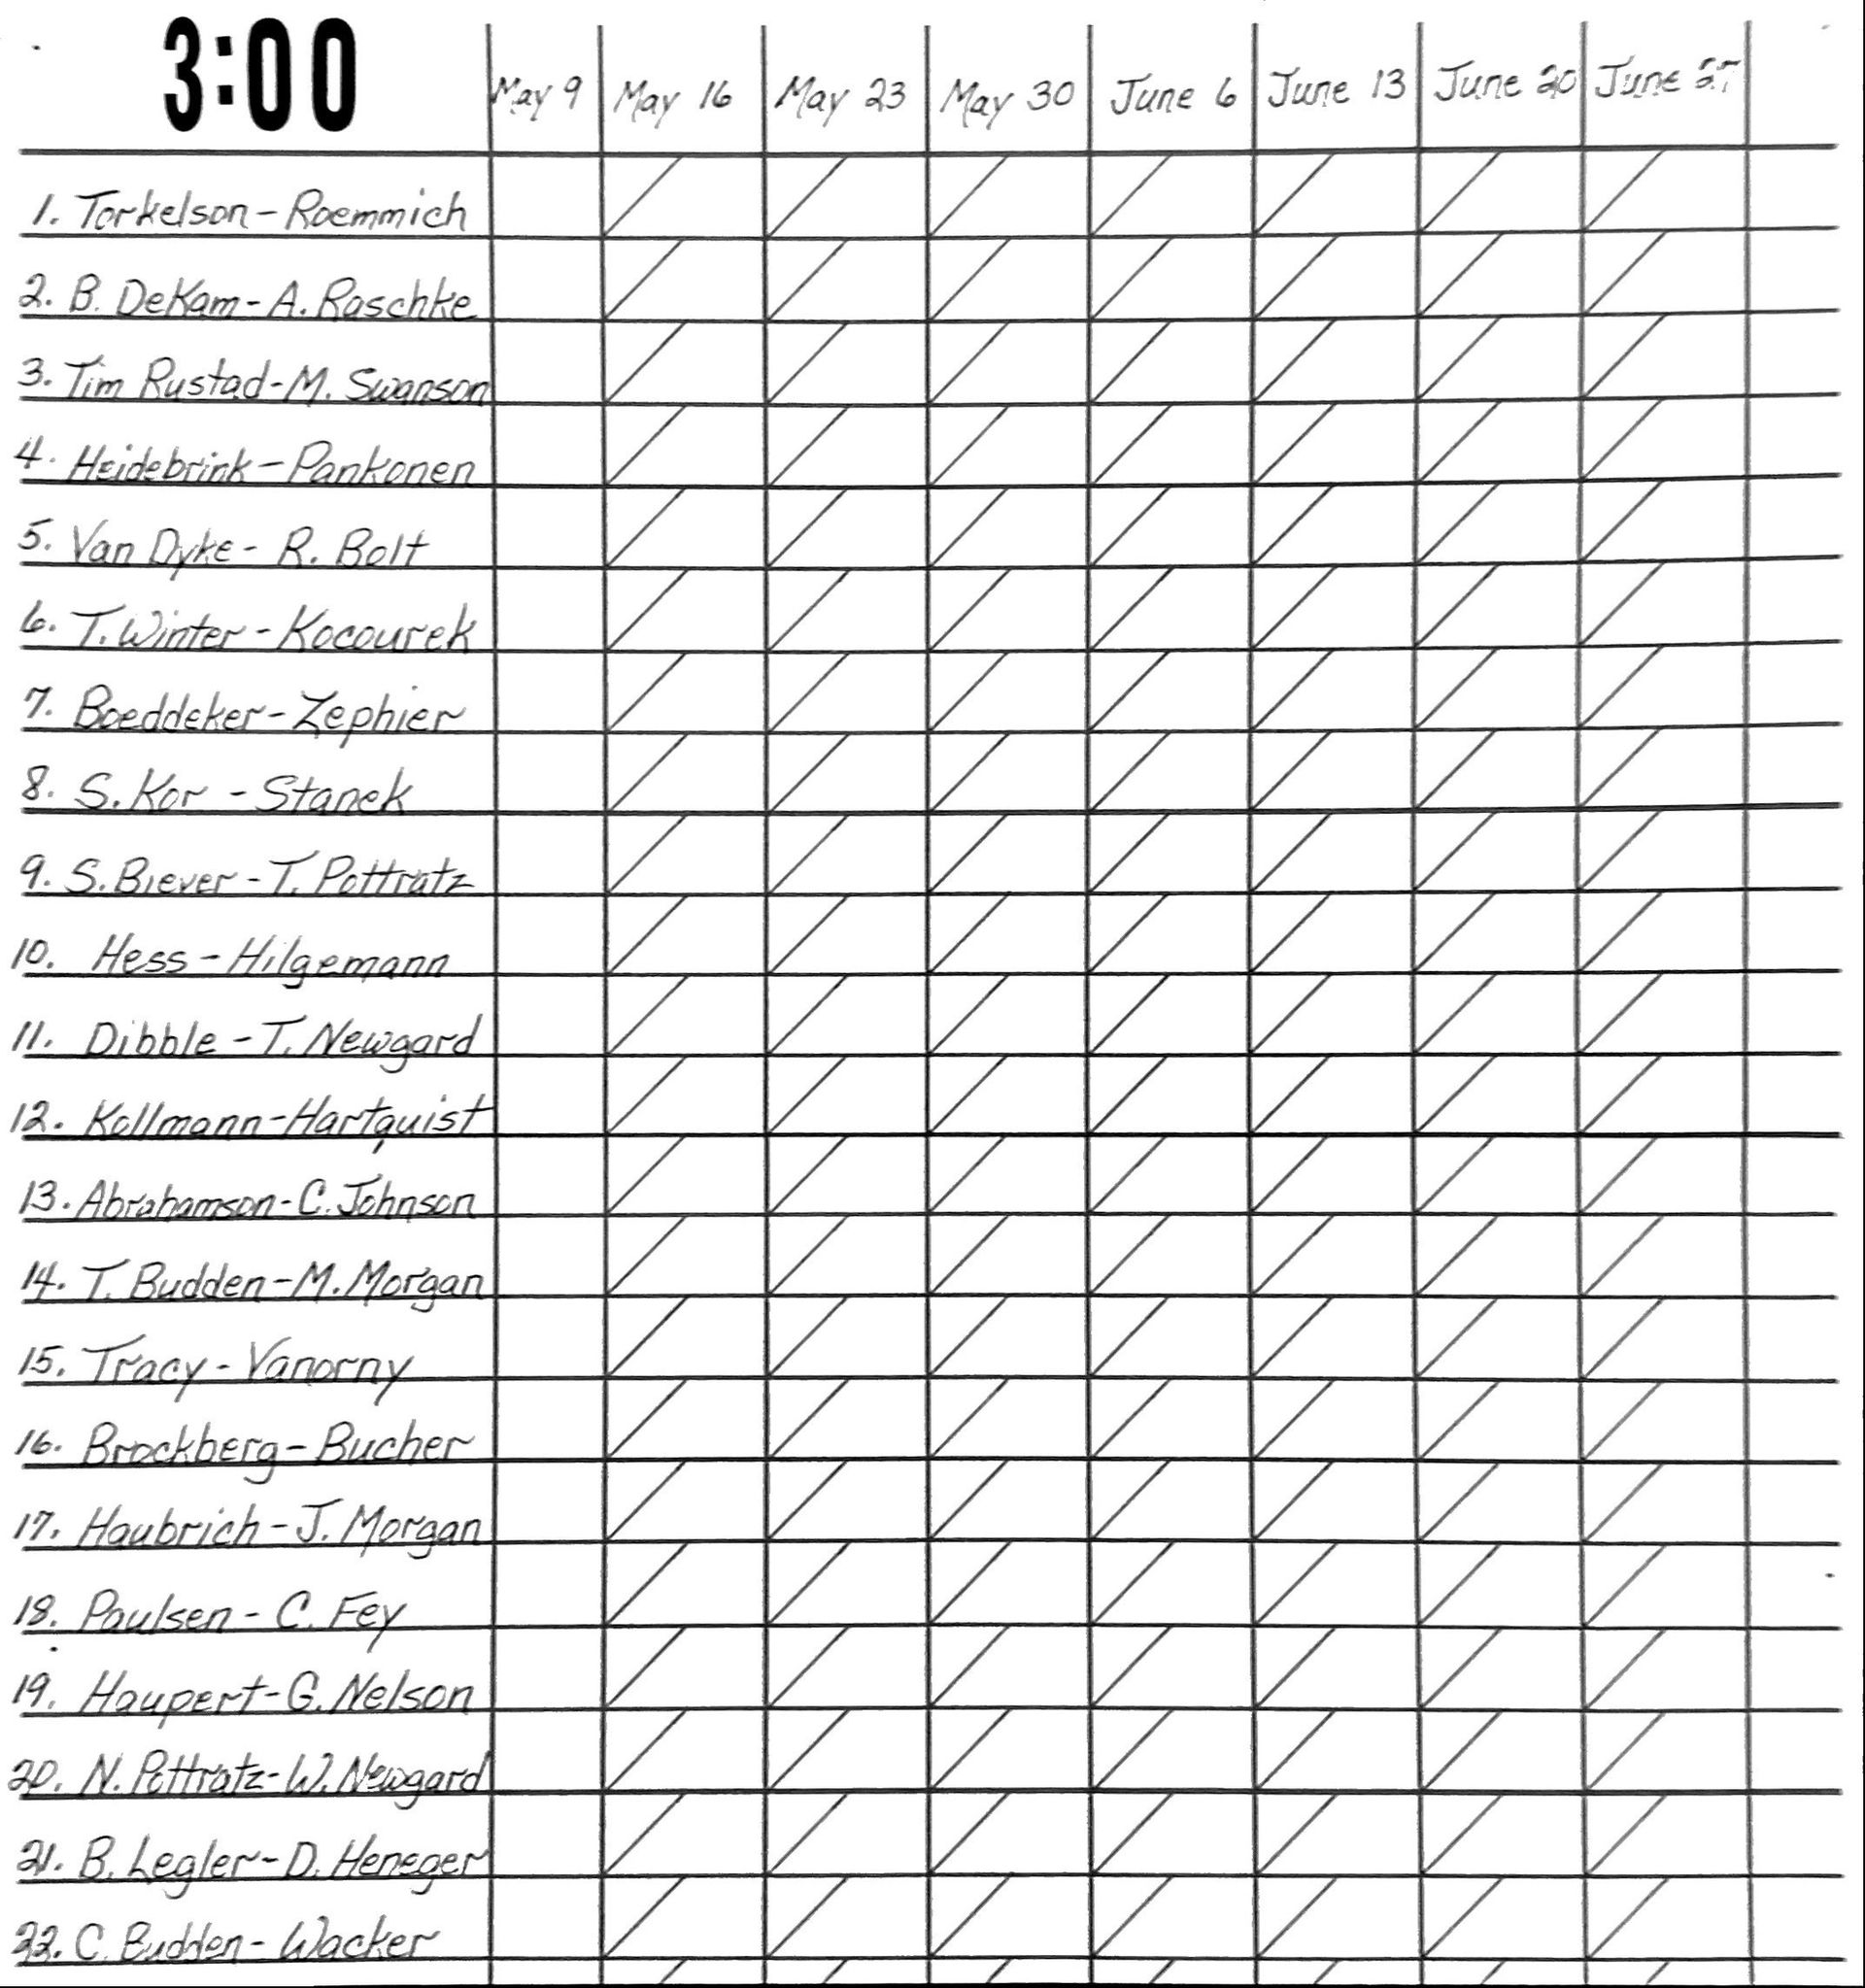 3:00 May 9 May 16 May 23 May 30 June 6 June 13 June 20 June 27
1. Torkelson - Roemmich
2. B. DeKam - A. Raschke
3. Tim Rustad - M. Swanson
4. Heidebrink - Pankonen
5. Van Dyke - R. Bolt
6. T. Winter - Kocourek
7. Boeddeker - Zephier
8. S. Kor - Stanek
9. S. Biever - T. Pottratz
10. Hess - Hilgemann
11. Dibble - T. Newgard
12. Kollmann - Hartquist
13. Abrahamson - C. Johnson
14. T. Budden - M. Morgan
15. Tracy - Vanorny
16. Brockberg - Bucher
17. Haubrich - J. Morgan
18. Paulsen - C. Fey
19. Haupert - G. Nelson
20. N. Pottratz - W. Newgard
21. B. Legler - D. Heneger
22. C. Budden - Wacker